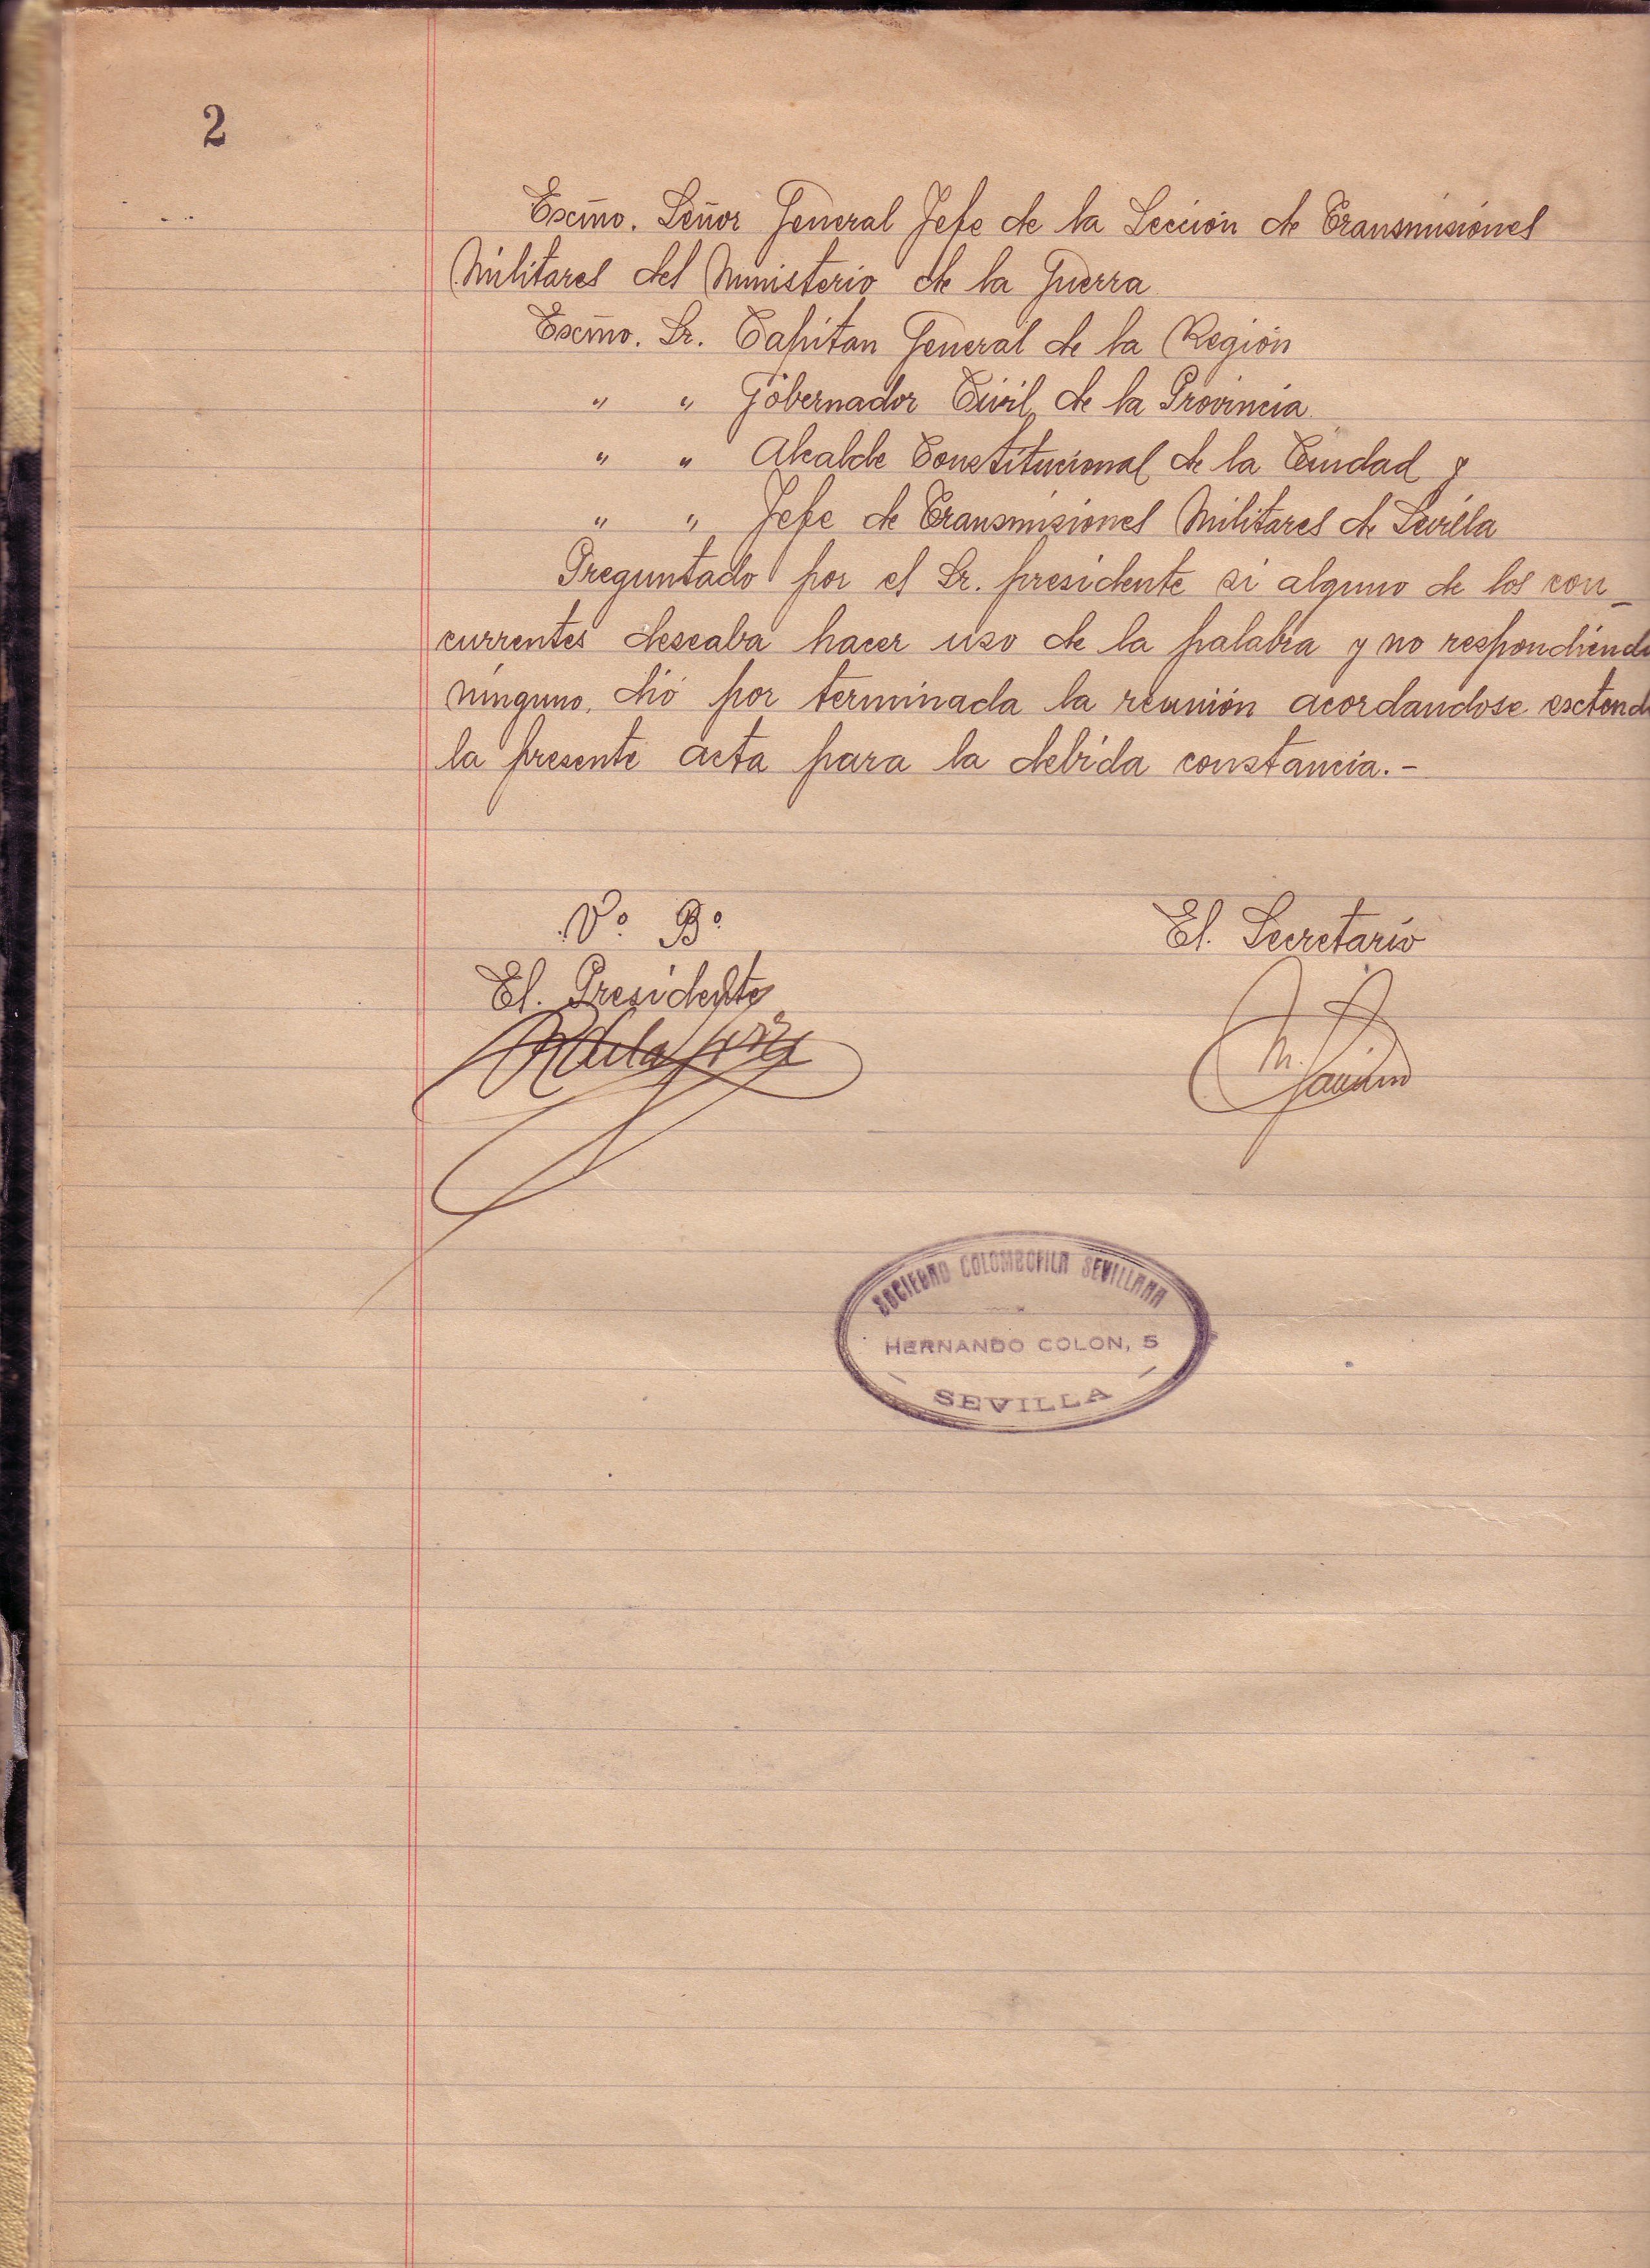 2
Excmo. Señor General Jefe de la Sección de Transmisiones
Militares del Ministerio de la Guerra
Excmo. Sr. Capitan General de la Region
" " Gobernador Civil de la Provincia
" " Alcalde Constitucional de la Ciudad y
" " Jefe de Transmisiones Militares de Sevilla
Preguntado por el Sr. presidente si alguno de los con_
currentes deseaba hacer uso de la palabra y no respondiendo
ninguno, dió por terminada la reunión acordandose esctend
la presente acta para la debida constancia.-
Vº Bº
El Secretario
El. Presidente
M.
SOCIEDAD COLOMBOFILA SEVILLANA
HERNANDO COLON, 5
SEVILLA